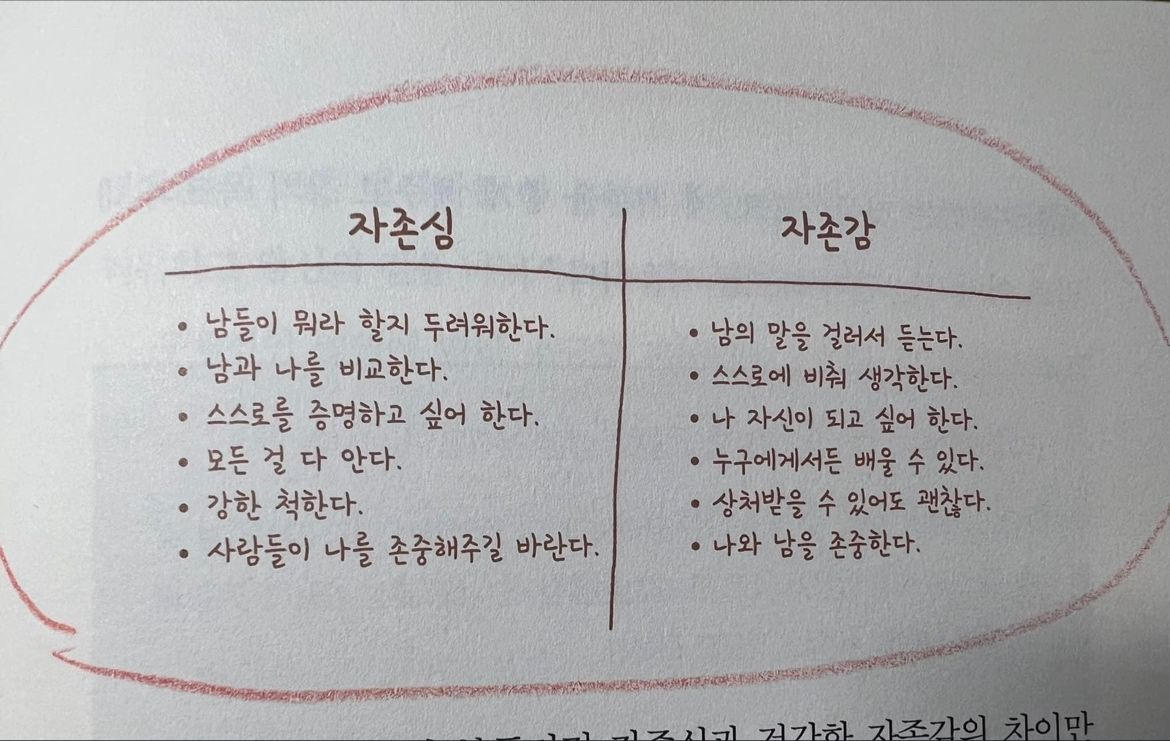 자존심
자존감
• 남들이 뭐라 할지 두려워한다.
• 남과 나를 비교한다.
• 스스로를 증명하고 싶어 한다.
• 모든 걸 다 안다.
• 강한 척한다.
• 사람들이 나를 존중해주길 바란다.
• 남의 말을 걸러서 듣는다.
• 스스로에 비춰 생각한다.
• 나 자신이 되고 싶어 한다.
• 누구에게서든 배울 수 있다.
• 상처받을 수 있어도 괜찮다.
• 나와 남을 존중한다.
자존감의 차이만